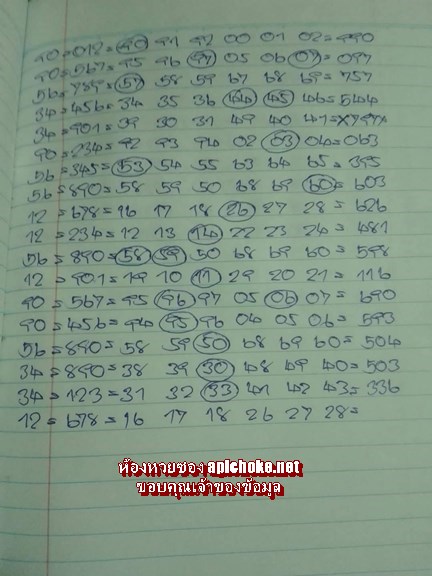 90=012=90 91 92 00 01 02=990
90=567=95 96 97 05 06 07=097
56=789=57 58 59 67 68 69=757
34=456=34 35 36 44 45 46=544
34=901=39 30 31 49 40 41=
90=234=92 93 94 02 03 04=063
56=345=53 54 55 63 64 65=395
56=890=58 59 50 68 69 60=603
12=678=16 17 18 26 27 28=626
12=234=12 13 14 22 23 24=481
56=890=58 59 50 68 69 60=598
12=901=19 10 11 29 20 21=116
90=567=95 96 97 05 06 07=690
90=456=94 95 96 04 05 06=593
56=890=58 59 50 68 69 60=504
34=890=38 39 30 48 49 40=503
34=123=31 32 33 41 42 43=336
12=678=16 17 18 26 27 28=
ห้องหวยซอง apichoke.net
ขอบคุณเจ้าของข้อมูล